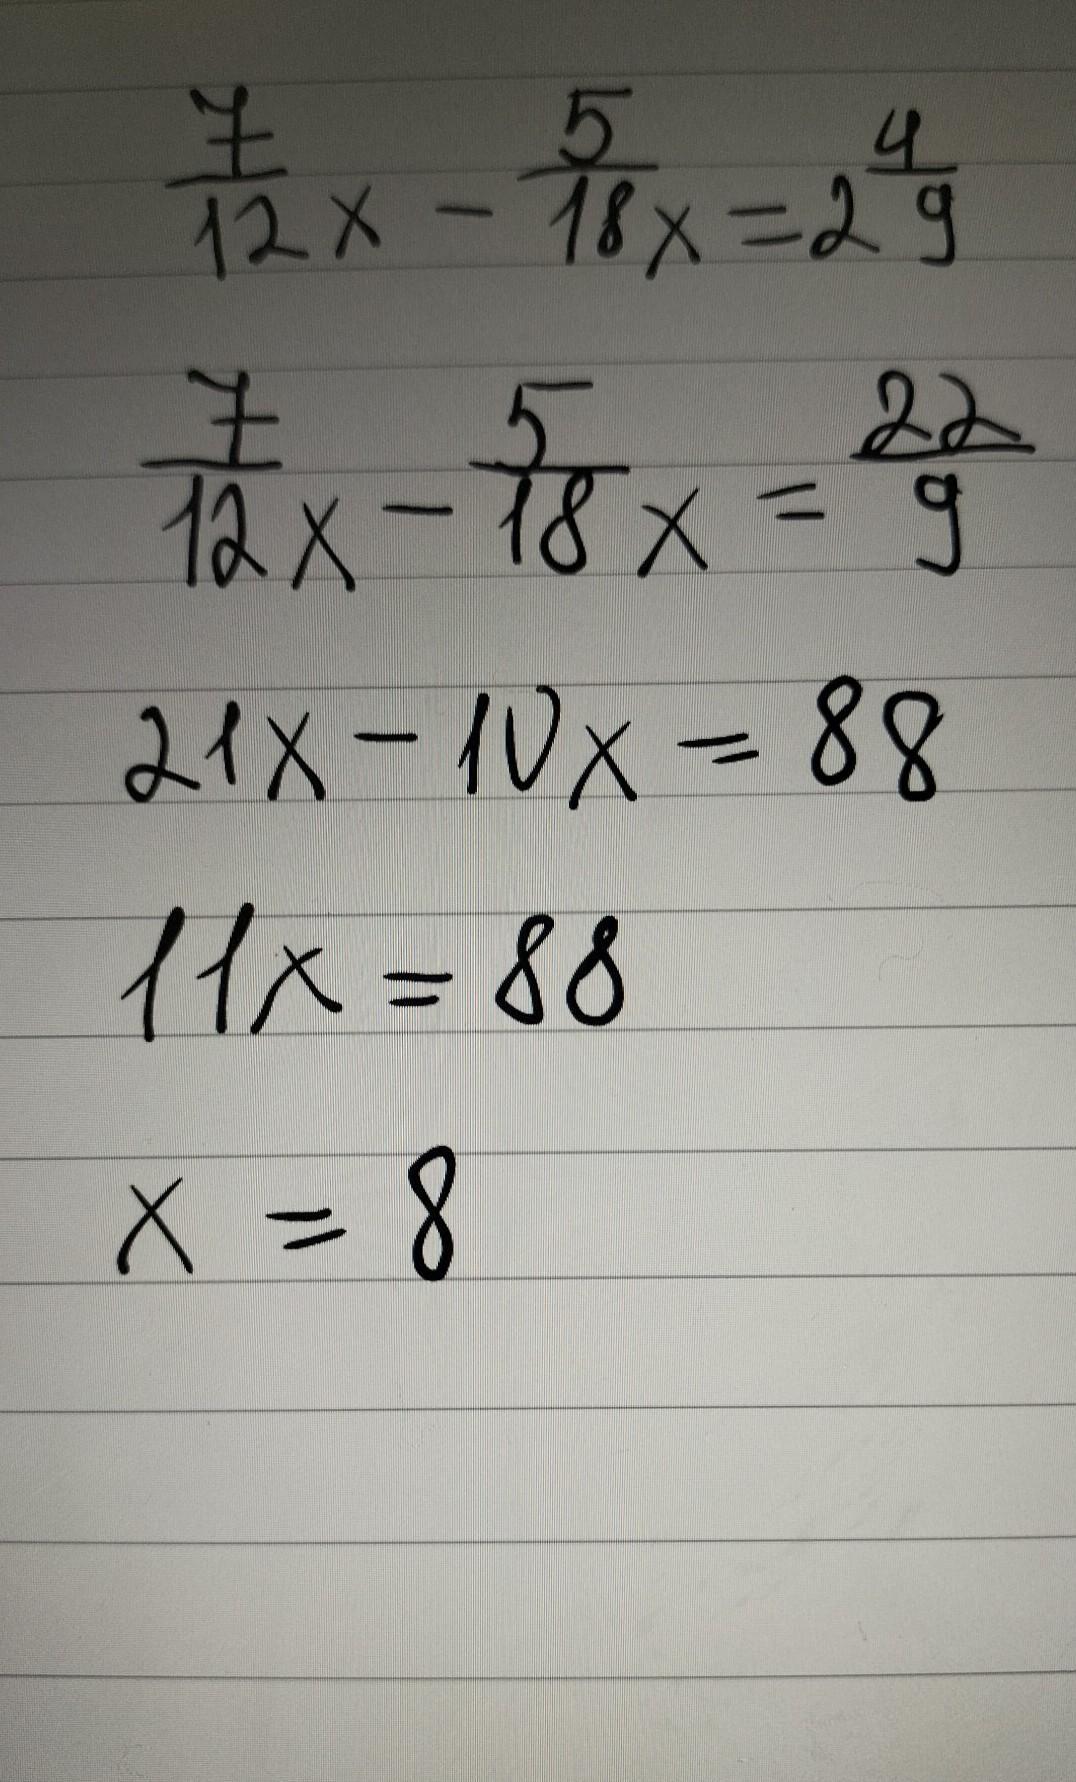 7/12 x - 5/18 x = 2 4/9
7/12 x - 5/18 x = 22/9
21x - 10x = 88
11x = 88
x = 8